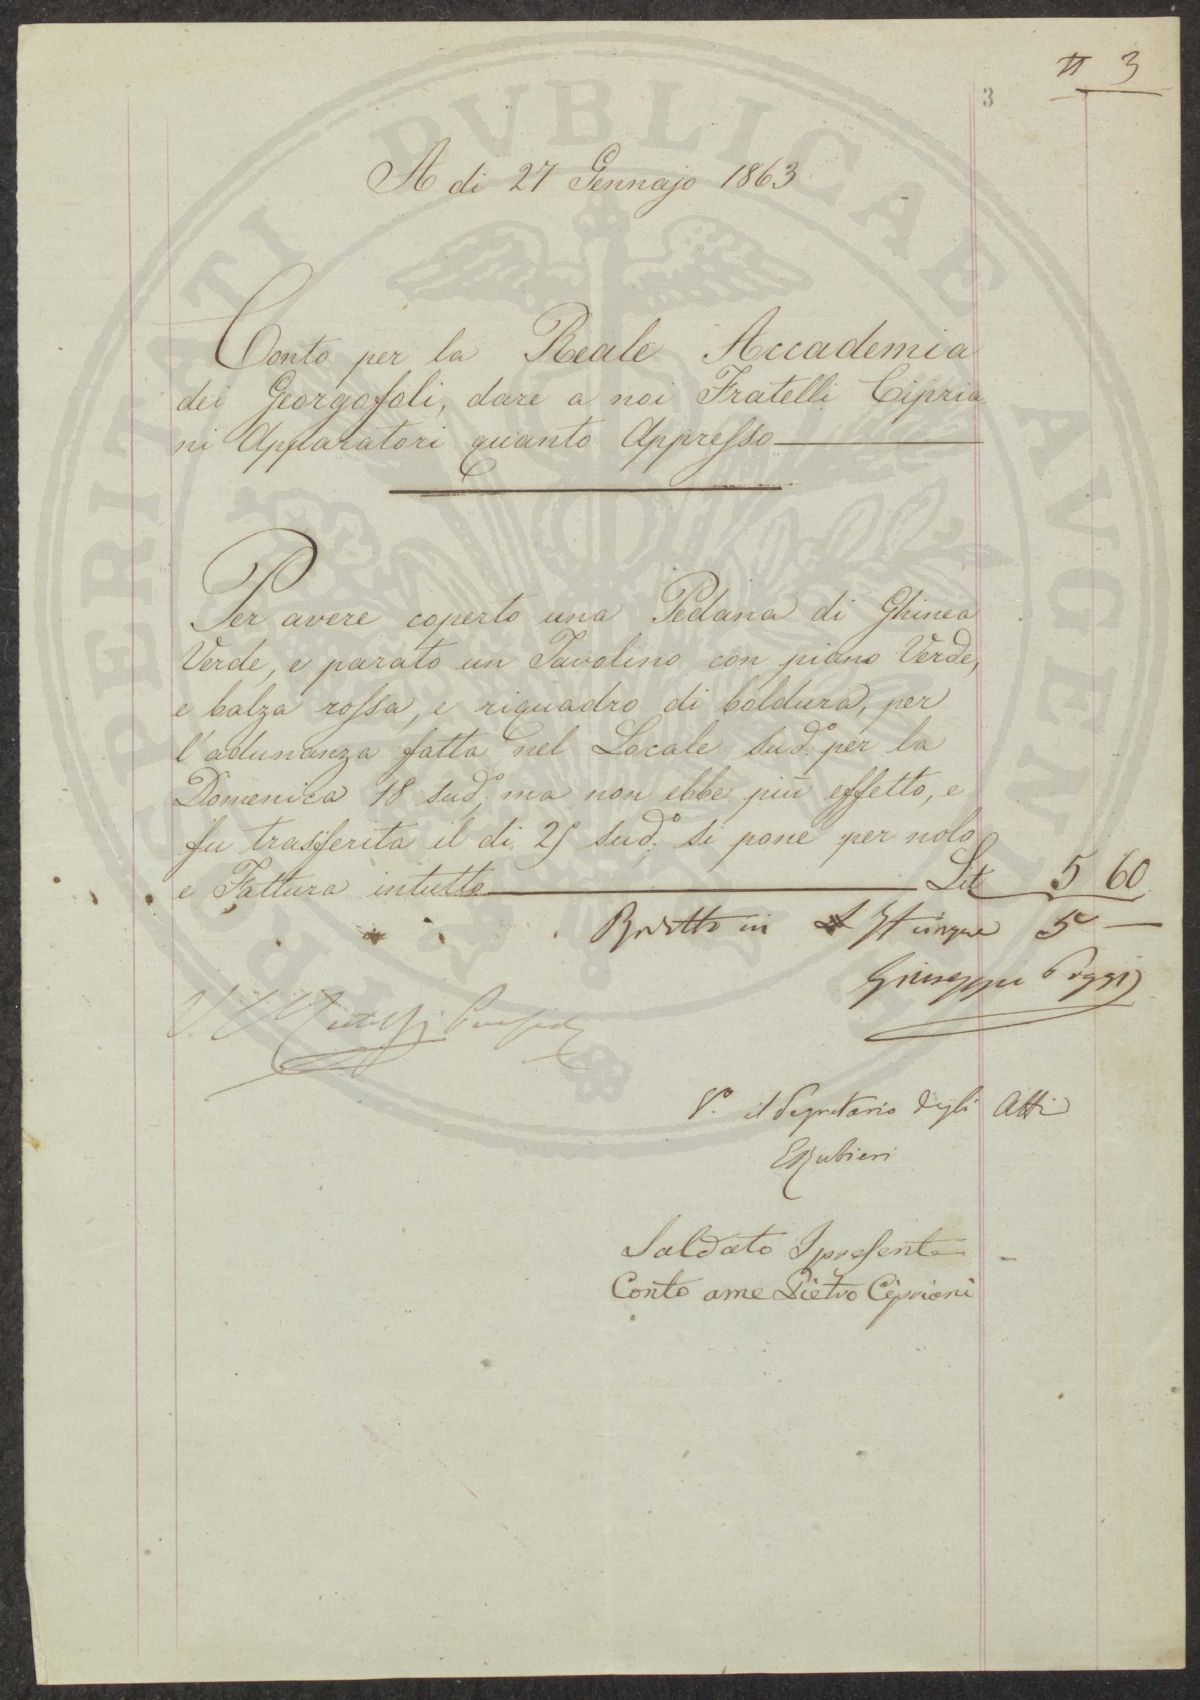 N 3
3
A di 27 Gennajo 1863
Conto per la Reale Accademia
dei Georgofoli, dare a noi Fratelli Cipria
ni Apparatori quanto Appresso
Per avere coperto una Pedana di Ghinea
Verde, e parato un Tavolino con piano Verde,
e balza rossa, e riquadro di boldura, per
l'adunanza fatta nel Locale sud.o per la
Domenica 18 sud.o, ma non ebbe più effetto, e
fu trasferita il di 25 sud.o si pone per nolo
e Fattura intutto Lit 5 60
Ridotto in cinque 5 —
Giuseppe Poggi
V.o il Segretario degli Atti
ERubieri
Saldato I presente
Conto ame Pietro Cipriani
PROSPERITATI PVBLICAE AVGENDAE